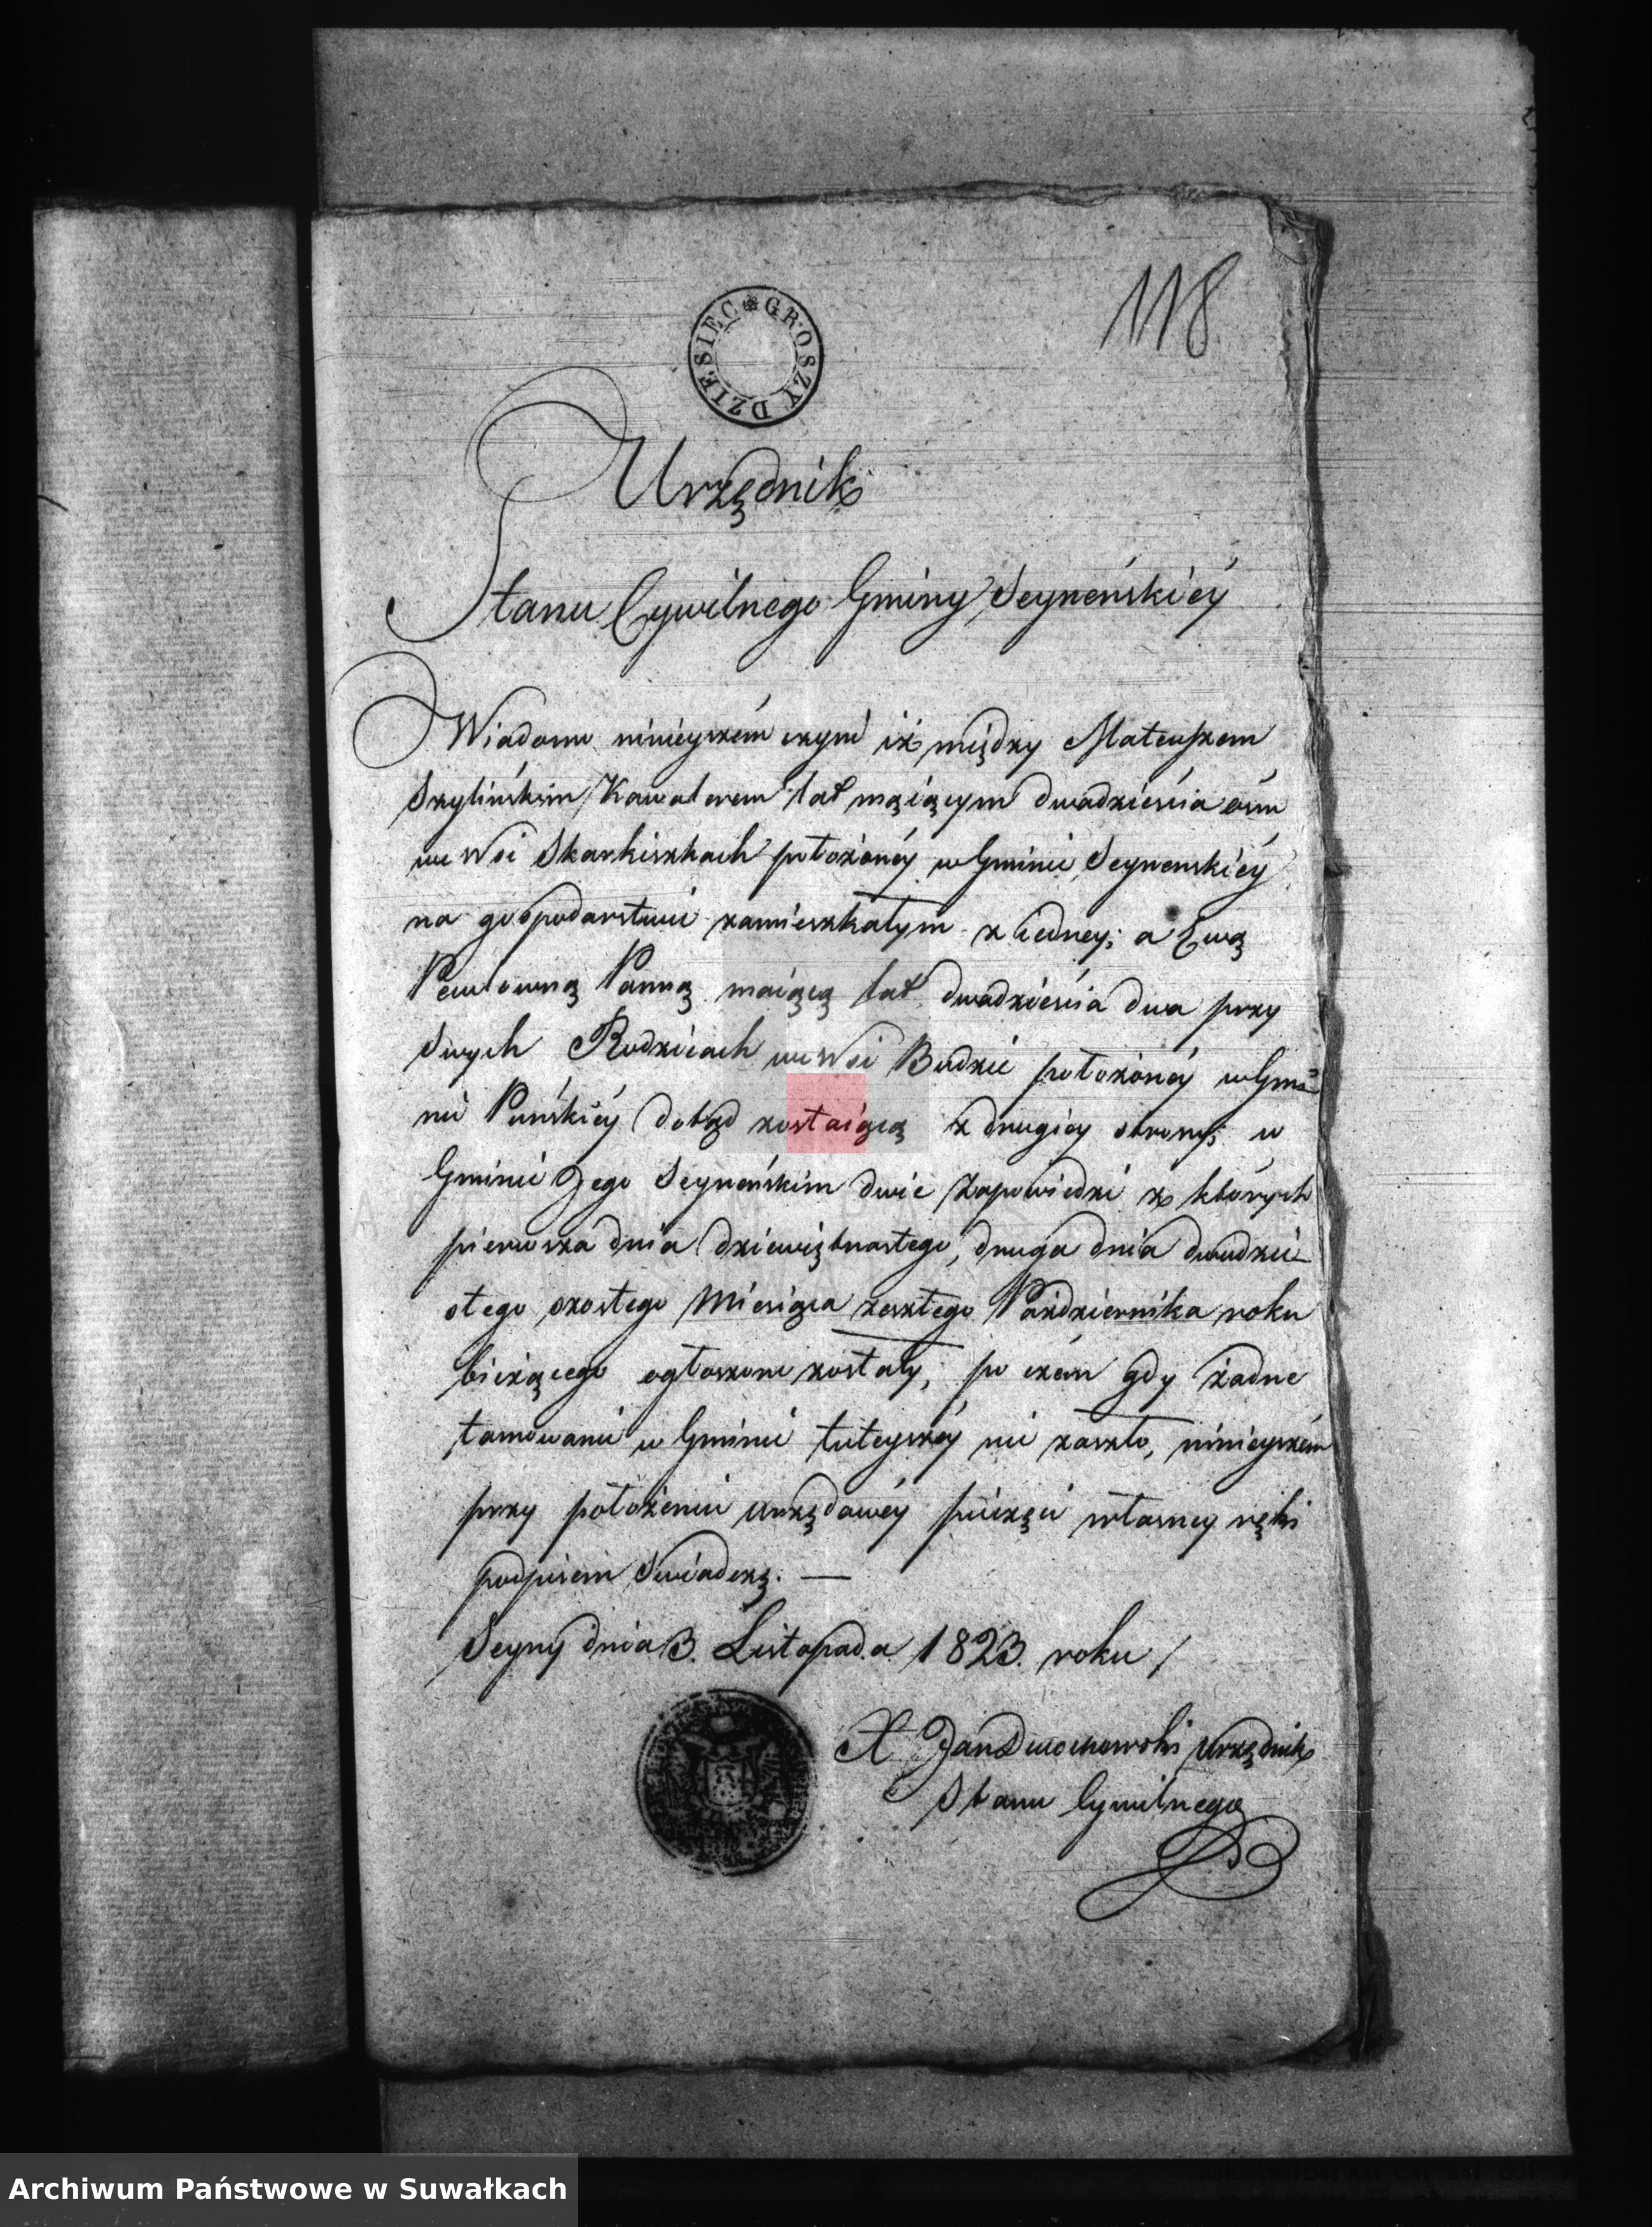 118
DZIESIEC GROSZY
Urzędnik
Stanu Cywilnego Gminy Seyneńskiéy
Wiadomo ninieyszém czyni iż między Mateuszem
Szylińskim Kawalerem lat maiącym dwadzieścia ośm
we Wsi Skarkiszkach położonéy w Gminie Seynenskiéy
na gospodarstwie zamieszkałym z iedney; a Ewą
Panną maiącą lat dwadzieścia dwa przy
swych Rodzicach we Wsi Budzie położonéy w Gmi-
nie Puńskiéy dotąd zostaiącą z drugiey strony; w
Gminie Jego Seyneńskim dwie zapowiedzi z których
pierwsza dnia dziewiętnastego, druga dnia dwudzie-
stego szostego Miesiąca zeszłego Października roku
bieżącego ogłoszone zostały; po czém gdy żadne
tamowanie w Gminie tuteyszéy nie zaszło, ninieyszém
przy położeniu urzędowéy pieczęci własney ręki
podpisem świadczę. —
Seyny dnia 3. Listopada 1823. roku /
X. Jan Dmochowski Urzędnik
Stanu Cywilnego
Archiwum Państwowe w Suwałkach